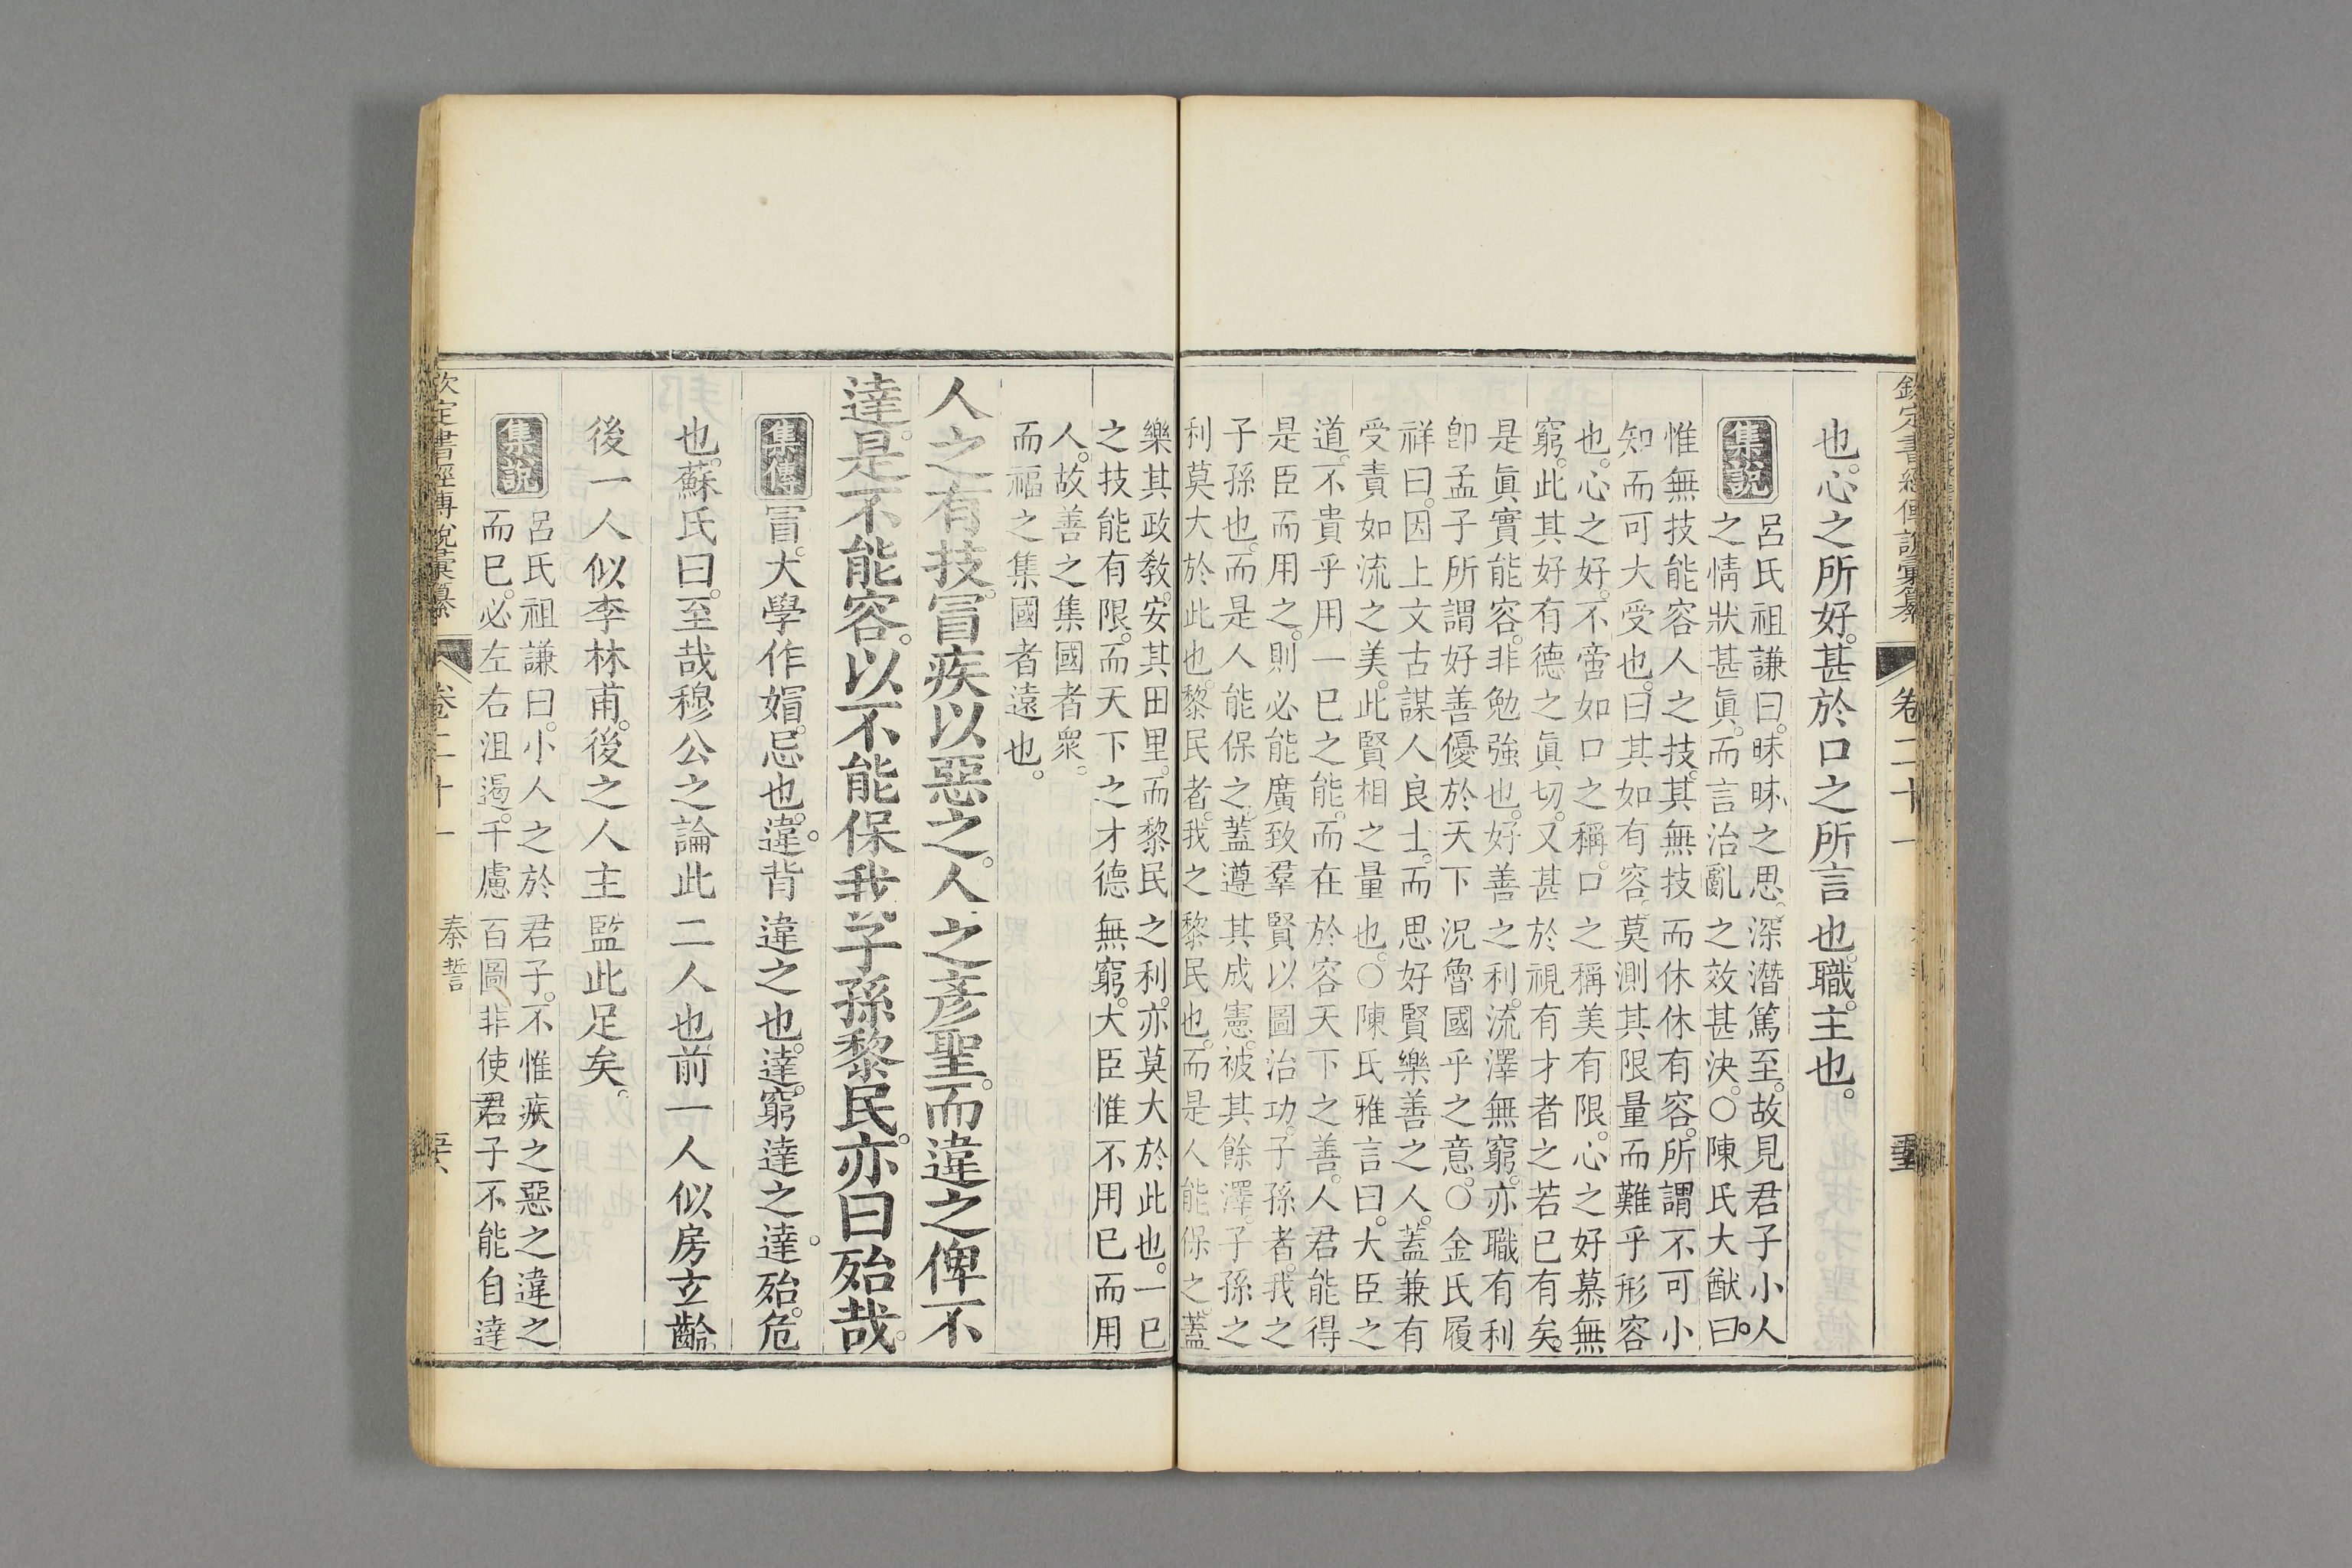 也。心之所好。甚於口之所言也。職。主也。
集說
呂氏祖謙曰。昧昧之思。深潛篤至。故見君子小人
之情狀甚眞。而言治亂之效甚決。○陳氏大猷曰。
惟無技能容人之技。其無技而休休有容。所謂不可小
知而可大受也。曰其如有容。莫測其限量而難乎形容
也。心之好。不啻如口之稱。口之稱美有限。心之好慕無
窮。此其好有德之眞切。又甚於視有才者之若已有矣。
是眞實能容。非勉強也。好善之利。流澤無窮。亦職有利
卽孟子所謂好善優於天下況魯國乎之意。○金氏履
祥曰。因上文古謀人良士。而思好賢樂善之人。蓋兼有
受責如流之美。此賢相之量也。○陳氏雅言曰。大臣之
道。不貴乎用一已之能。而在於容天下之善。人君能得
是臣而用之。則必能廣致羣賢以圖治功。子孫者。我之
子孫也。而是人能保之。蓋遵其成憲。被其餘澤。子孫之
利莫大於此也。黎民者。我之黎民也。而是人能保之。蓋
樂其政敎。安其田里。而黎民之利。亦莫大於此也。一已
之技能有限。而天下之才德無窮。大臣惟不用已而用
人。故善之集國者衆。
而福之集國者遠也。
人之有技。冒疾以惡之。人之彥聖。而違之俾不
達。是不能容。以不能保我子孫黎民。亦曰殆哉。
集傳
冒。大學作媢。忌也。違。背違之也。達。窮達之達。殆。危
也。蘇氏曰。至哉穆公之論此二人也前一人似房立齡。
後一人似李林甫。後之人主監此足矣。
集說
呂氏祖謙曰。小人之於君子。不惟疾之惡之違之
而巳。必左右沮遏。千慮百圖。非使君子不能自達
秦誓
欽定書經傳說彙纂
卷二十一